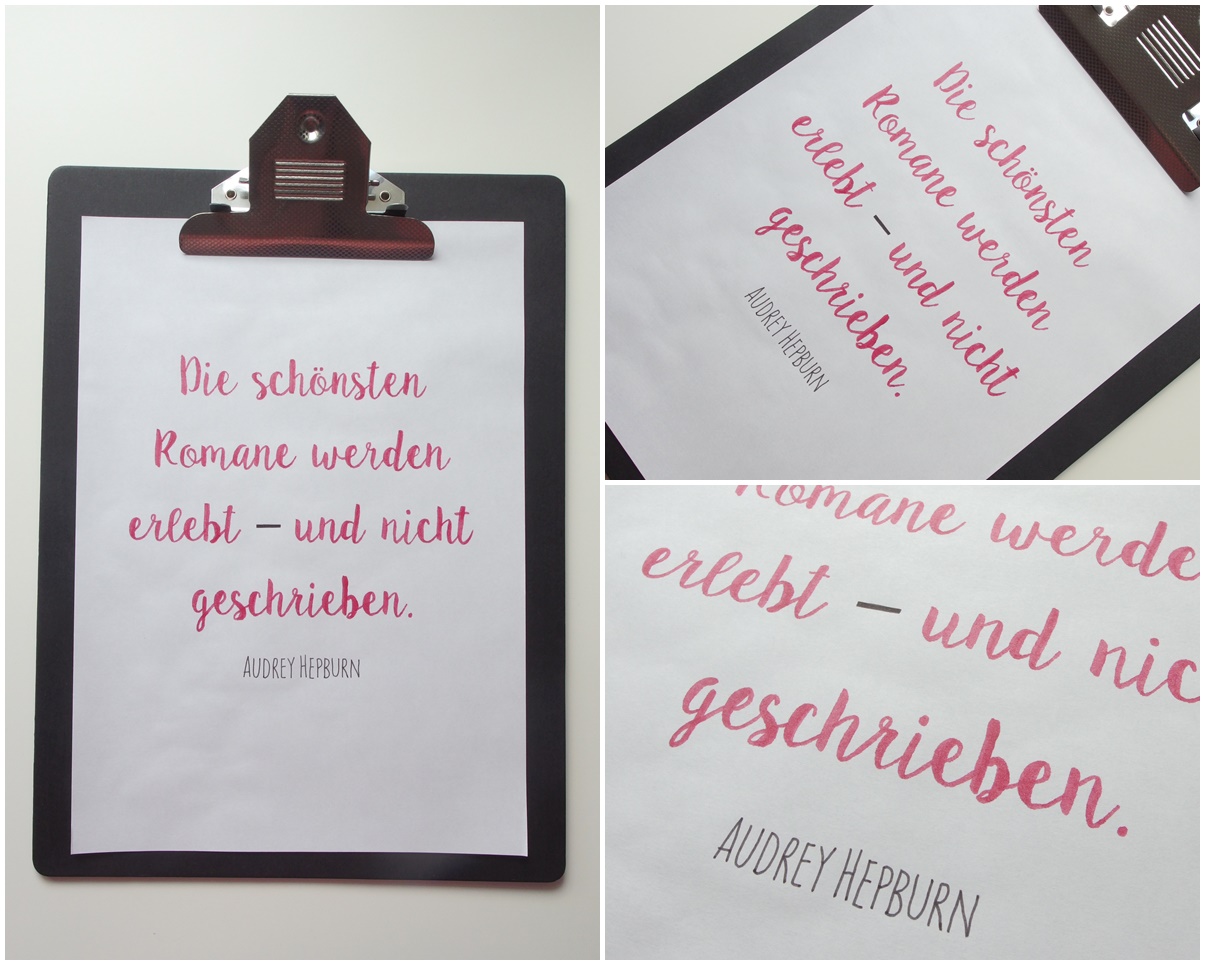 Die schönsten
Romane werden
erlebt – und nicht
geschrieben.
AUDREY HEPBURN
Die schönsten
Romane werden
erlebt – und nicht
geschrieben.
AUDREY HEPBURN
Romane werde
erlebt – und nic
geschrieben.
AUDREY HEPBURN